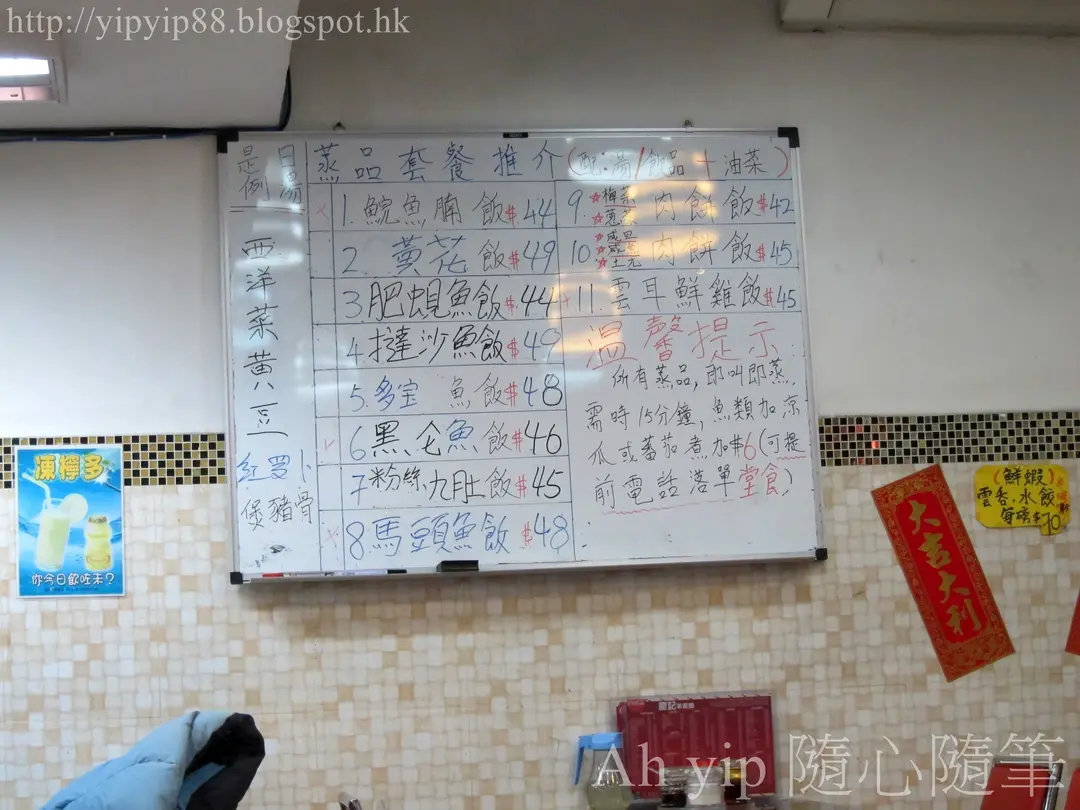 http://yipyip88.blogspot.hk
是日
例湯
西洋菜黃豆
紅蘿卜
煲豬骨
蒸品套餐推介(配:湯/飲品+油菜)
1. 鯇魚腩飯$44
2. 黃花飯$49
3. 肥蜆魚飯$44
4. 撻沙魚飯$49
5. 多宝魚飯$48
6 黑仑魚飯$46
7 粉絲九肚飯$45
8 馬頭魚飯$48
9. 梅菜
葱菜
肉餅飯$42
10 咸旦
咸魚
土尤
肉餅飯$45
11. 雲耳鮮雞飯$45
溫馨提示
所有蒸品,即叫即蒸.
需時15分鐘,魚類加凉
瓜或蕃茄煮加$6(可提
前電話落單堂食)
凍檸多
你今日飲咗未?
大吉大利
(鮮蝦)
雲吞.水餃
每磅$70
慶記
Ah yip 隨心隨筆